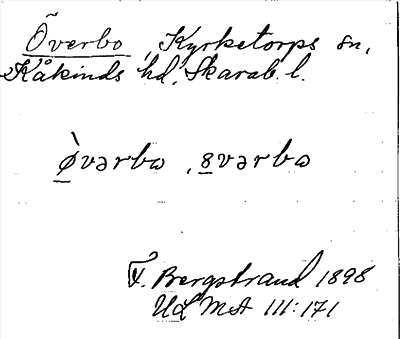 Överbo, Kyrketorps sn,
Kåkinds hd, Skarab. l.
ø̀vərbω, 8vərbω
T. Bergstrand 1898
Ud MA III:171